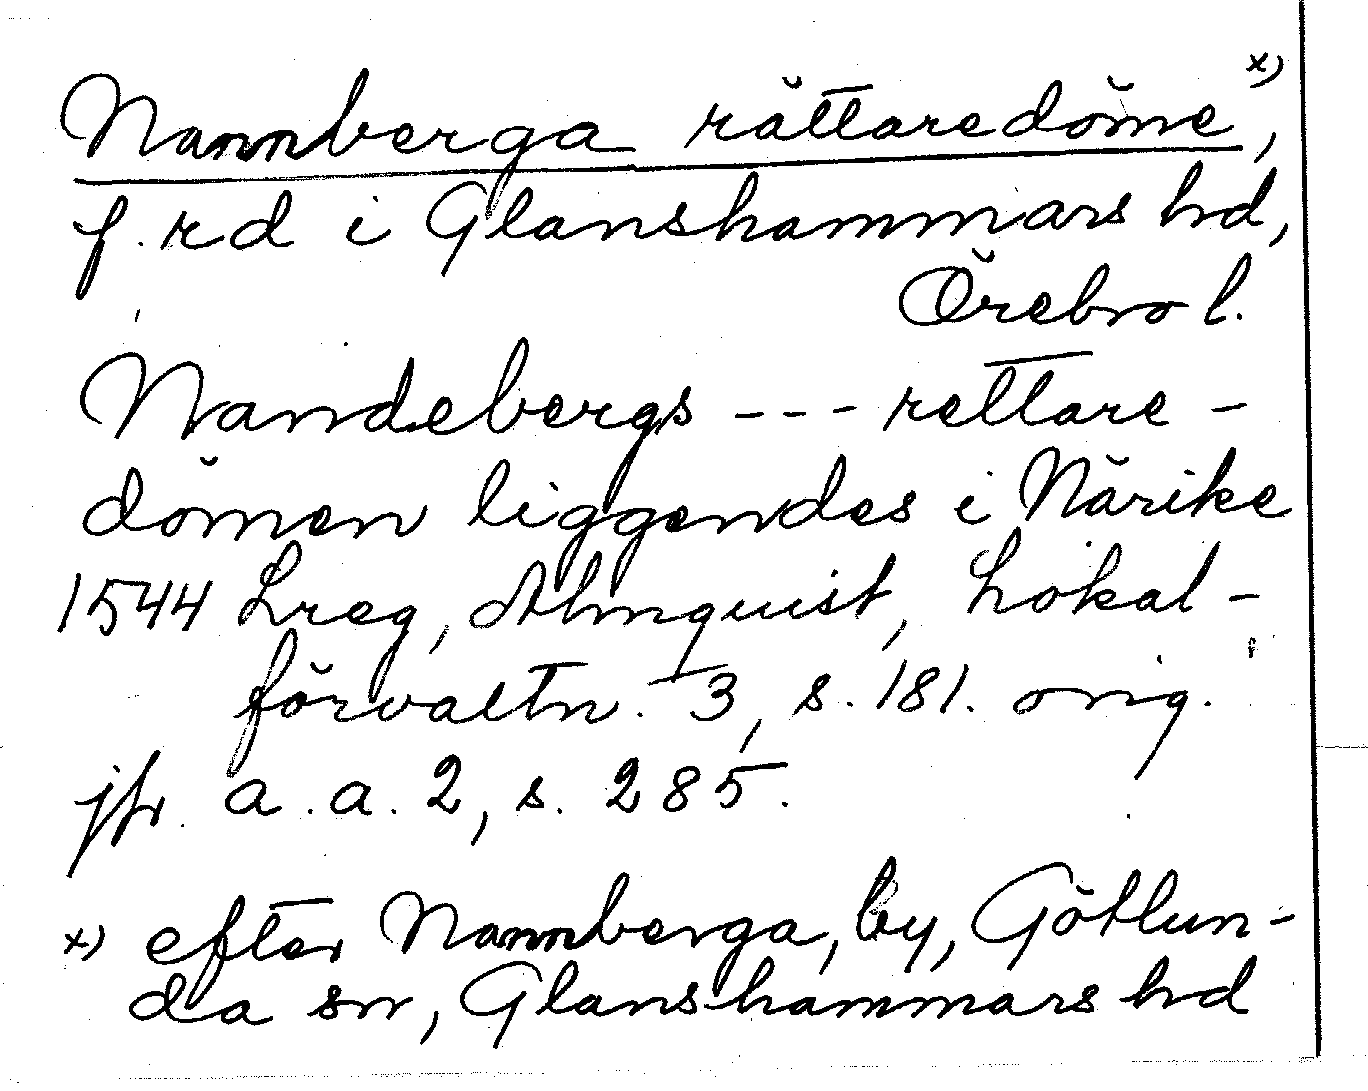 Nannberga rättaredöme x),
f. rd i Glanshammars hd,
Örebro l.
Nandebergs --- rettare-
dömen liggendes i Närike
1544 Lreg, Almquist, Lokal-
förvaltn. 3, s. 181. orig.
jfr a.a. 2, s. 285.
x) efter Nannberga, by, Götlun-
da sn, Glanshammars hd